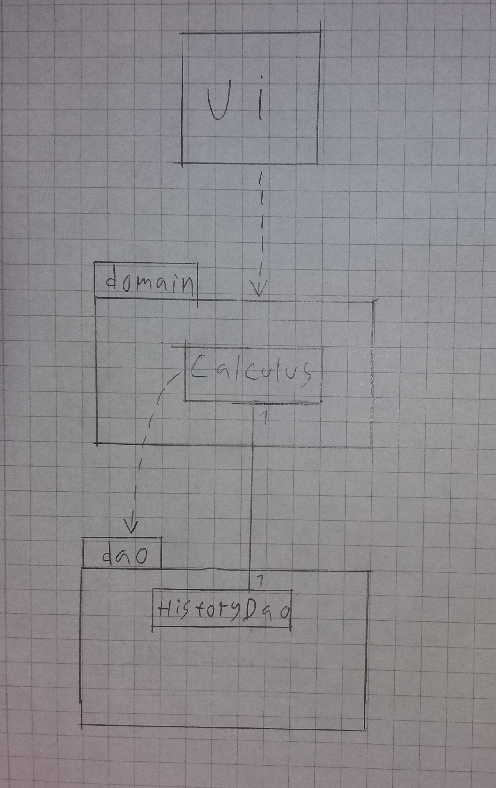 Ui
domain
Calculus
1
dao
1
HistoryDao